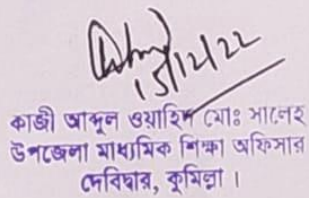 15/12/22
কাজী আব্দুল ওয়াহিদ মোঃ সালেহ
উপজেলা মাধ্যমিক শিক্ষা অফিসার
দেবিদ্বার, কুমিল্লা ।